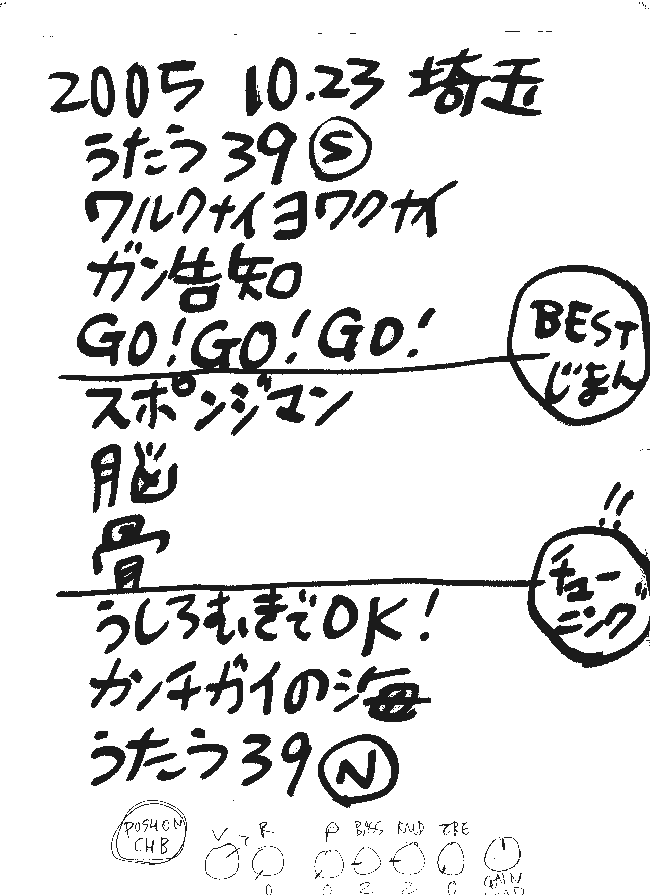 2005 10.23 埼玉
うたう39 Ⓢ
ワルクナイヨワクナイ
ガン告知
GO!GO!GO!
BEST
じまん
スポンジマン
脳
骨
!!
チューニング
うしろむきでOK!
カンチガイの海
うたう39 Ⓝ
V R P BASS MID TRE
GAIN